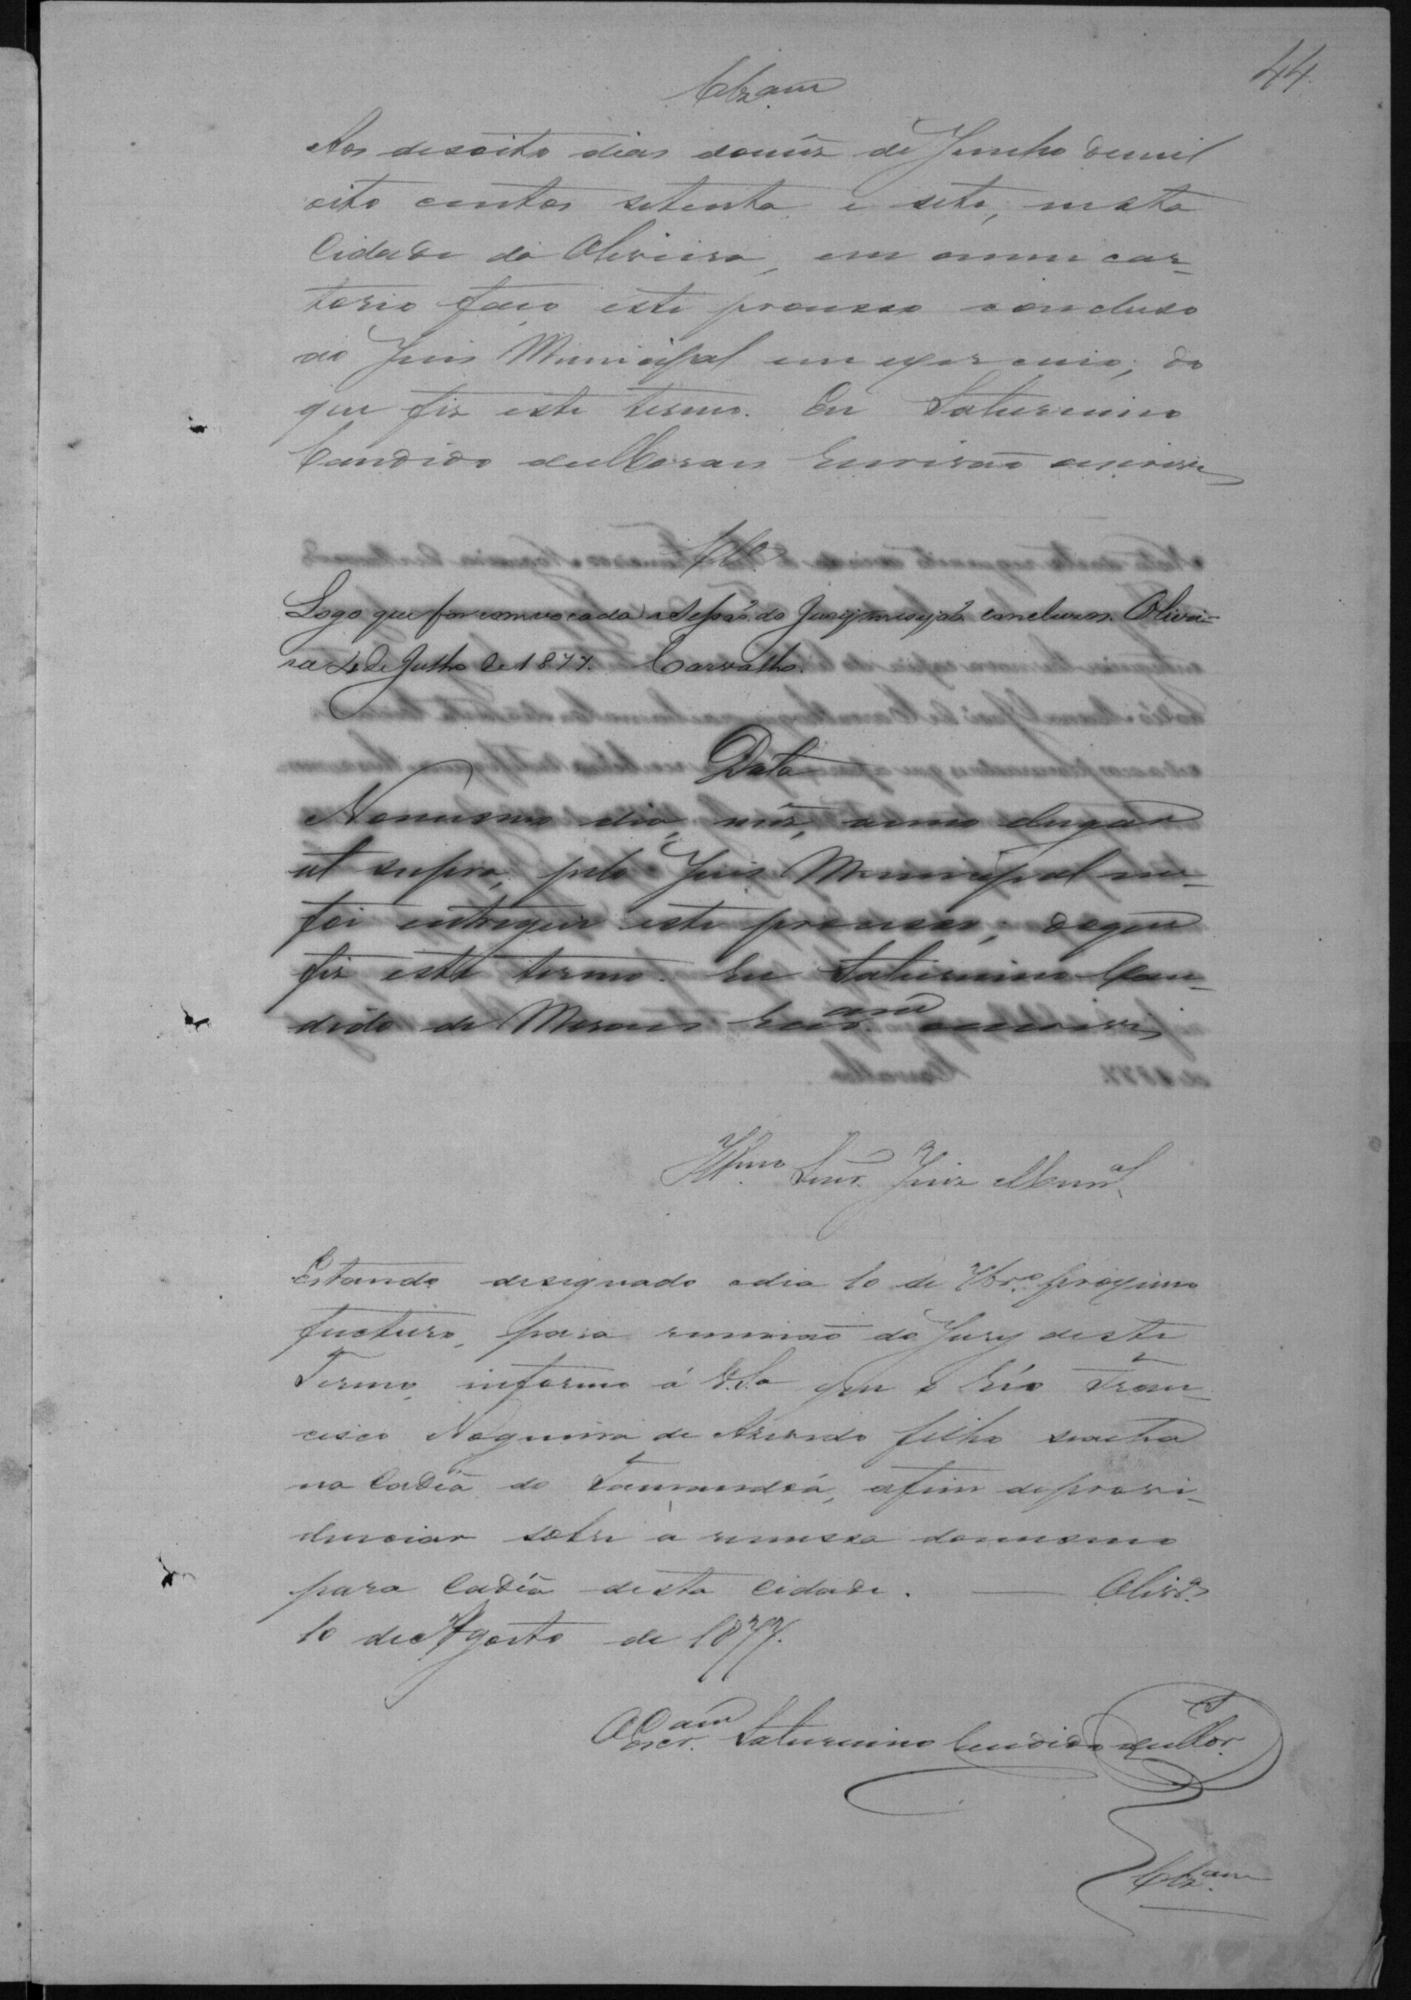 44
Clzam
Aos desoito dias do mês de Junho de mil
oito centos setenta e sete, nesta
Cidade de Oliveira, em o meu car-
torio faço este processo concluso
ao Juis Municipal em exercicio; do
que fiz este termo. Eu Saturnino
Candido de Moraes Escrivão escrevi
Clz.
Logo que for convocada a Sessão do Jury conclusos. Olivei-
ra 4 de Julho de 1877. Carvalho.
Data
No mesmo dia, mês, anno e lugar
ut supra, pelo Juis Municipal me
foi entregue este processo; do que
fiz este termo. Eu Saturnino Can-
dido de Moraes Escr.am escrevi
Illmo Senr. Juiz Munal.
Estando designado o dia 10 de 7bro proximo
fucturo, para reunião do Jury deste
Termo, informo á V.Sa que o Réo Fran-
cisco Nogueira de Azevedo filho se acha
na Cadêa do Tamanduá, afim de provi-
denciar sobre a remessa do mesmo
para Cadêa desta Cidade. — Olivra
10 de Agosto de 1877.
O Escr.am Saturnino Candido de Mor.
Clzam